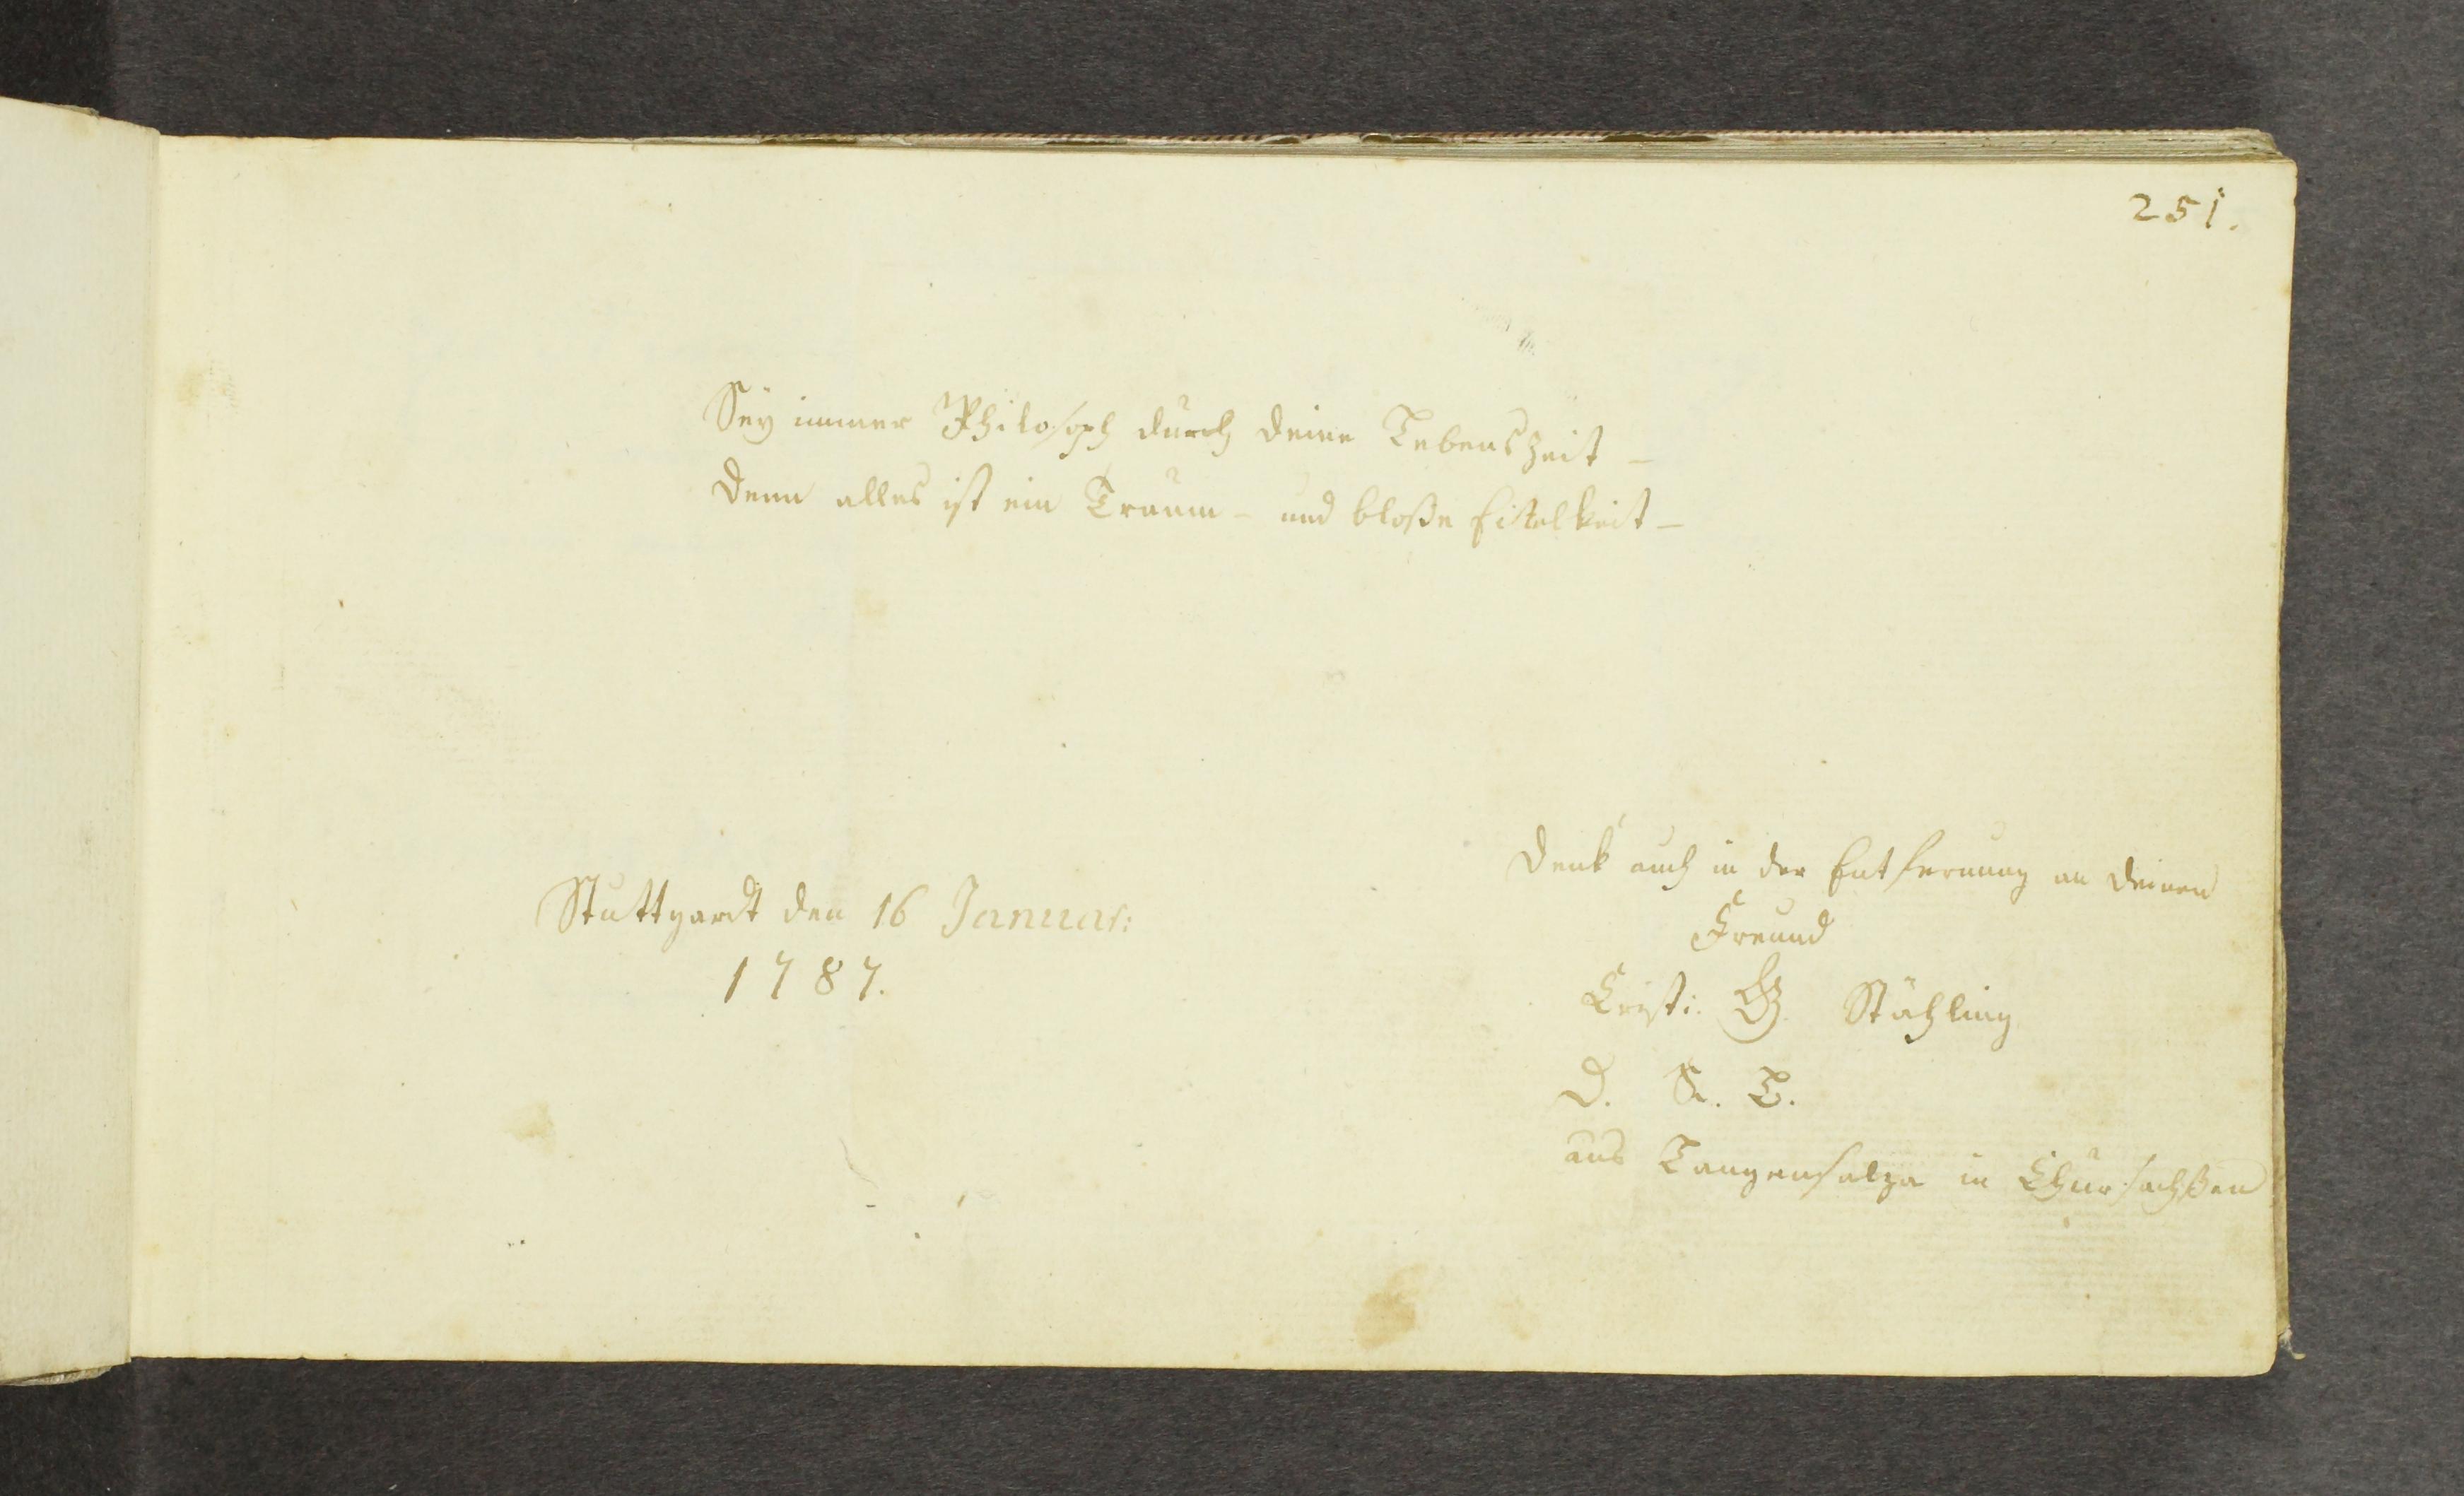 251.
Sey immer Philosoph durch deine Lebenszeit –
Denn alles ist ein Traum – und bloße Eitelkeit –
Stuttgardt den 16 Januar:
1787.
Denk' auch in der Entfernung an deinen
Freund
Cristi: Stähling
D. C.
aus Langensalza in Chursachßen